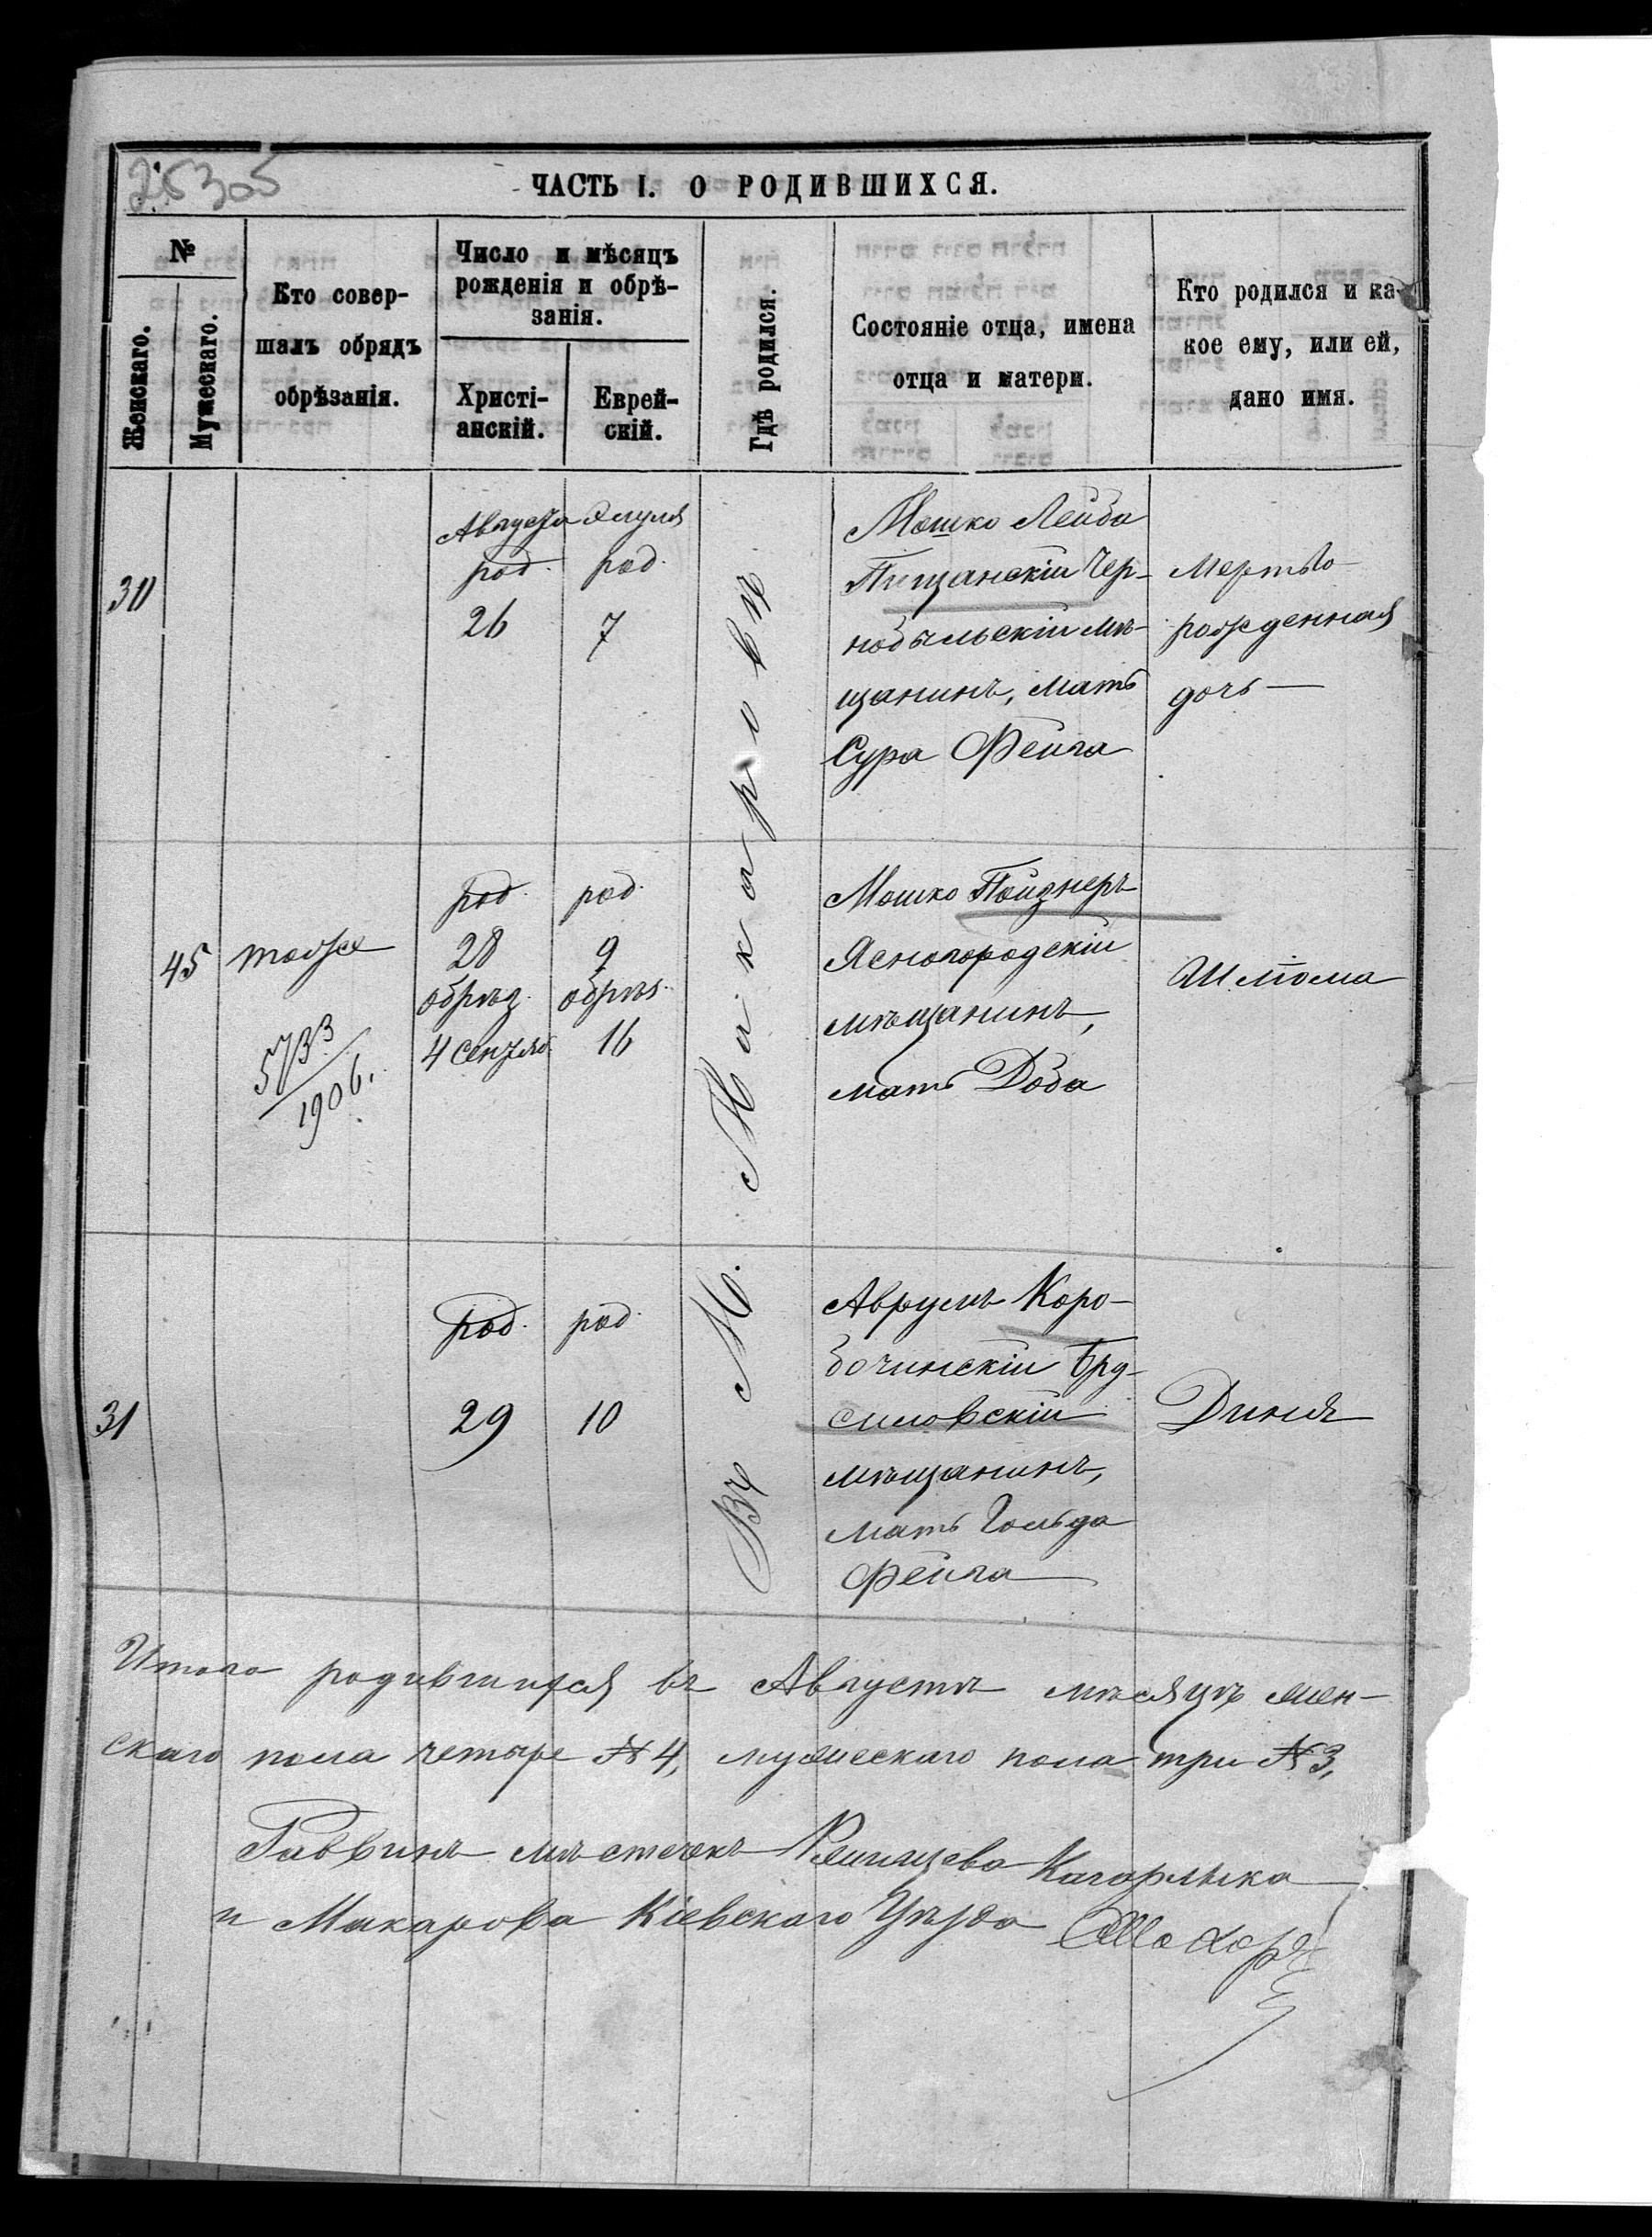 25305
ЧАСТЬ I. О РОДИВШИХСЯ.
№
Женскаго.
Мужескаго.
Кто совер-
шалъ обрядъ
обрѣзанія.
Число и мѣсяцъ
рожденія и обрѣ-
занія.
Христі-
анскій.
Еврей-
скій.
Гдѣ родился.
Состояніе отца, имена
отца и матери.
Кто родился и ка-
кое ему, или ей,
дано имя.
Въ М. Макаровѣ
30
Августа
род.
26
Элуля
род.
7
Мошко Лейба
Пищанскій Чер-
нобыльскій мѣ-
щанинъ, мать
Сура Фейга
Мертво-
рожденная
дочь —
45
тоже
5733
1906.
род.
28
обрѣз.
4 сентяб.
род.
9
обрѣз.
16
Мошко Пойзнеръ
Ясногородскій
мѣщанинъ,
мать Доба
Шлома
31
род.
29
род.
10
Аврумъ Коро-
бочинскій Бру-
силовскій
мѣщанинъ,
мать Гольда
Фейга
Диня
Итого родившихся въ Августѣ мѣсяцѣ жен-
скаго пола четыре № 4, мужескаго пола три № 3,
Раввинъ мѣстечекъ Ржищева Кагарлыка
и Макарова Кіевскаго Уѣзда